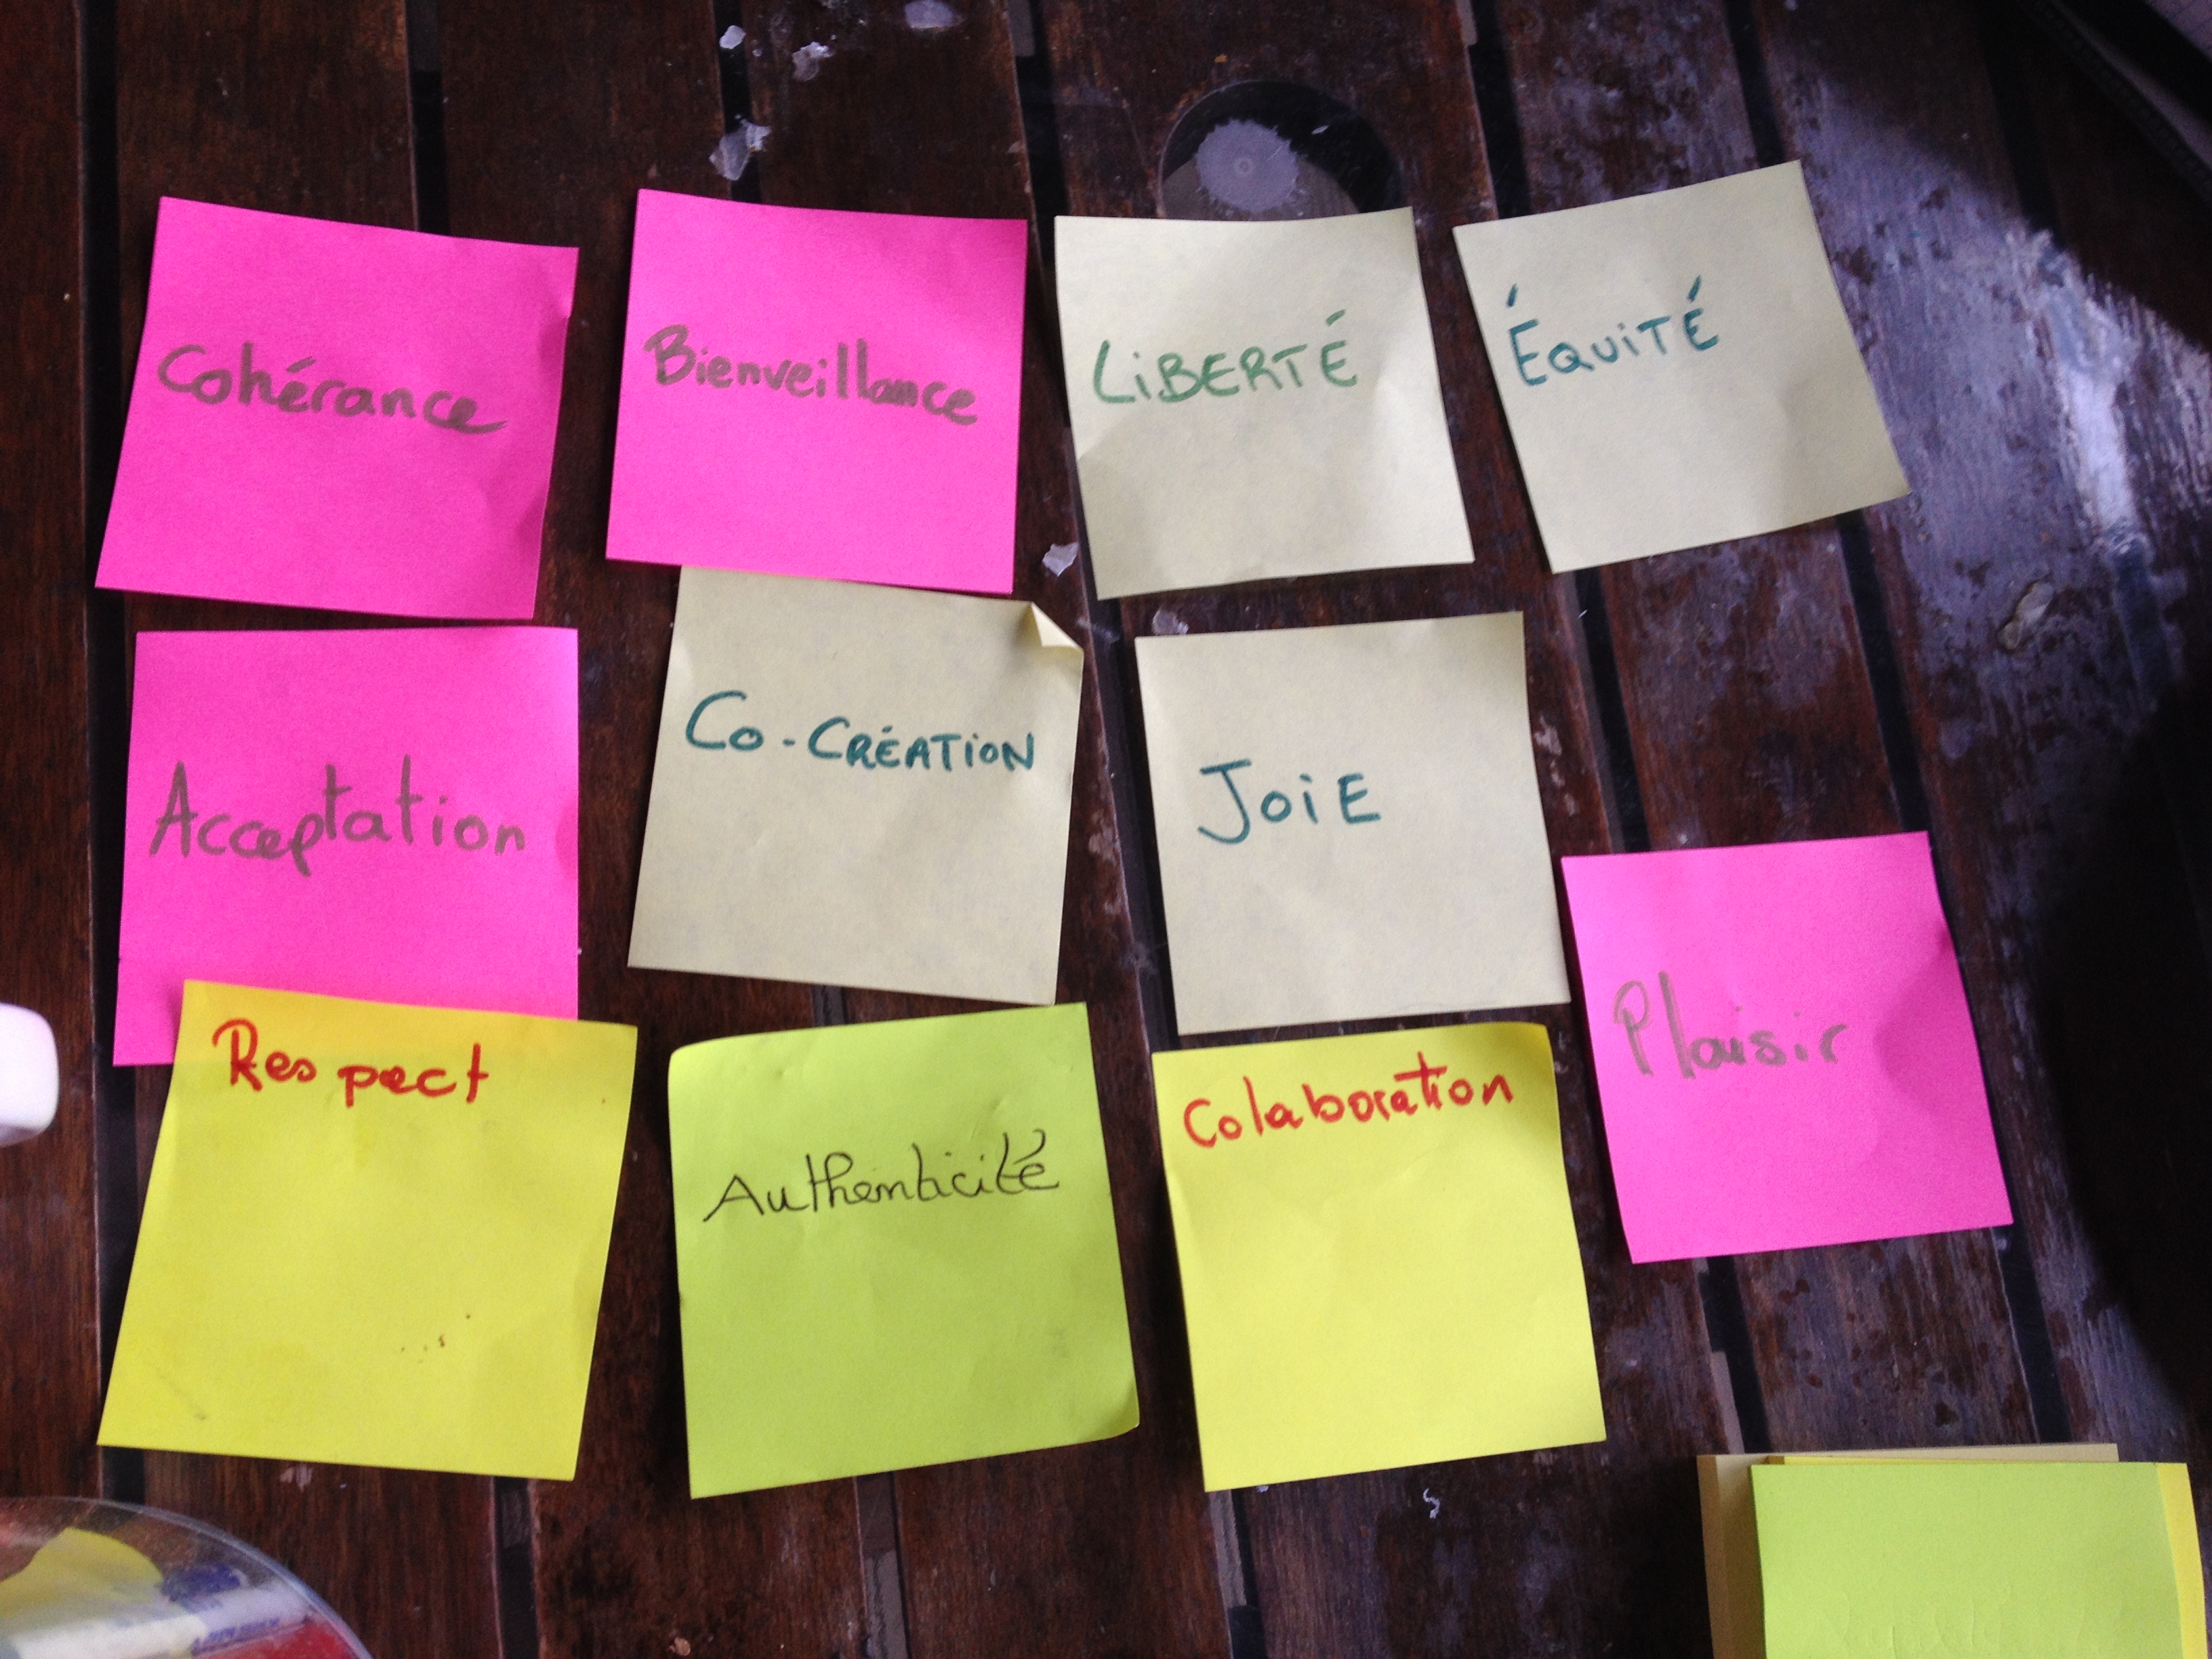 Cohérance
Bienveillance
LiBERTÉ
ÉQUiTÉ
Acceptation
Co-CRÉATiON
JOiE
Plaisir
Respect
Authenticité
Colaboration